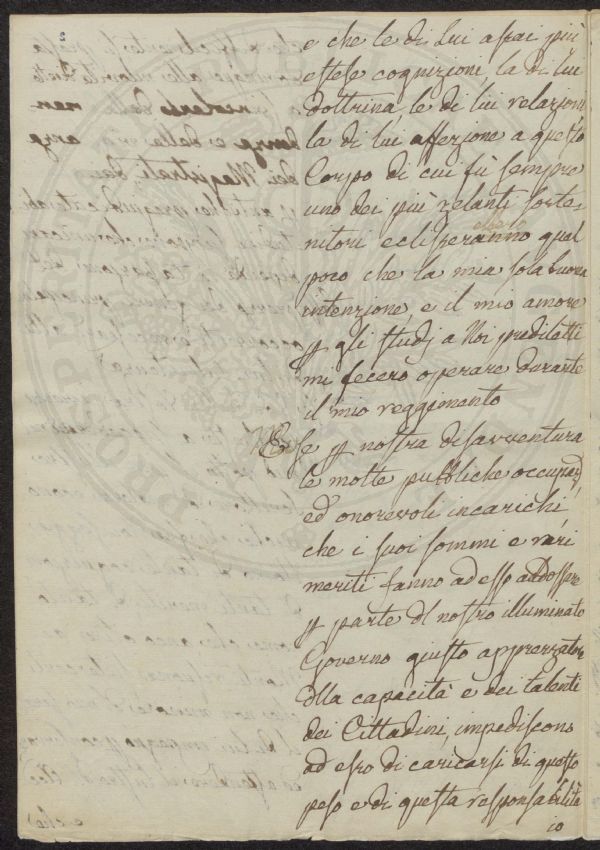 2
e che le di Lui assai più
estese cognizioni, la di lui
dottrina, le di lui relazioni
la di lui affezione a questo
Corpo di cui fù sempre
uno dei più zelanti soste-
nitori eclisseranno quel
poco che la mia sola buona
intenzione, e il mio amore
p gli studj a Noi prediletti
mi fecero operare durante
il mio reggimento
E se p nostra disavventura
le molte pubbliche occupaz
ed onorevoli incarichi,
che i suoi sommi e rari
meriti fanno ad esso addossare
p parte dl nostro illuminato
Governo giusto apprezzatore
della capacità e dei talenti
dei Cittadini, impediscono
ad esso di caricarsi di questo
peso e di questa responsabilità
io